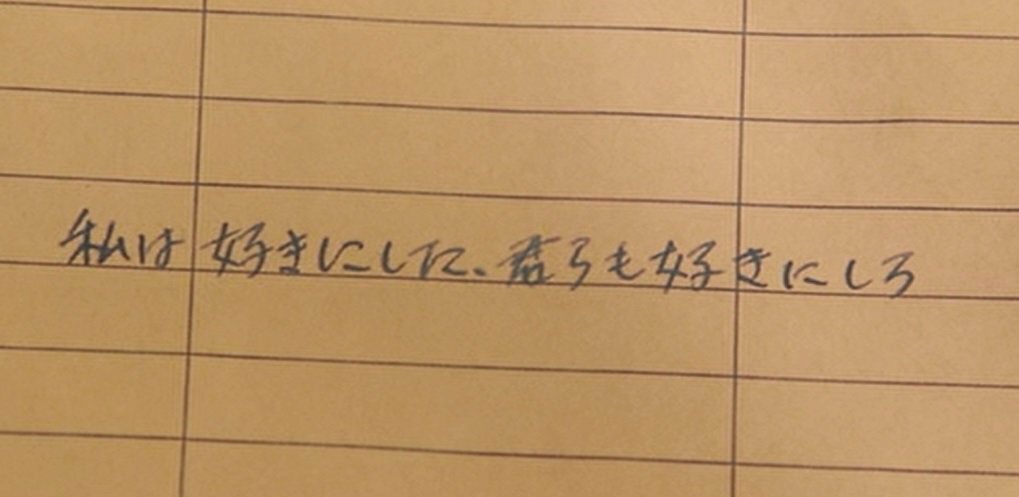 私は好きにした、君らも好きにしろ